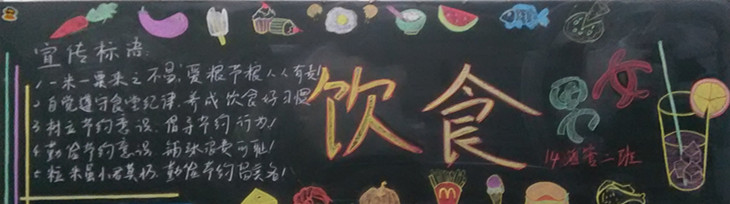 宣传标语
1、一米一粟来之不易,爱粮节粮人人有责
2 自觉遵守食堂纪律,养成饮食好习惯
3 树立节约意识,倡导节约行为!
4 勤俭节约意识,铺张浪费可耻!
5 粒米虽小君莫扔,勤俭节约留美名!
饮食
男女
14酒管二班